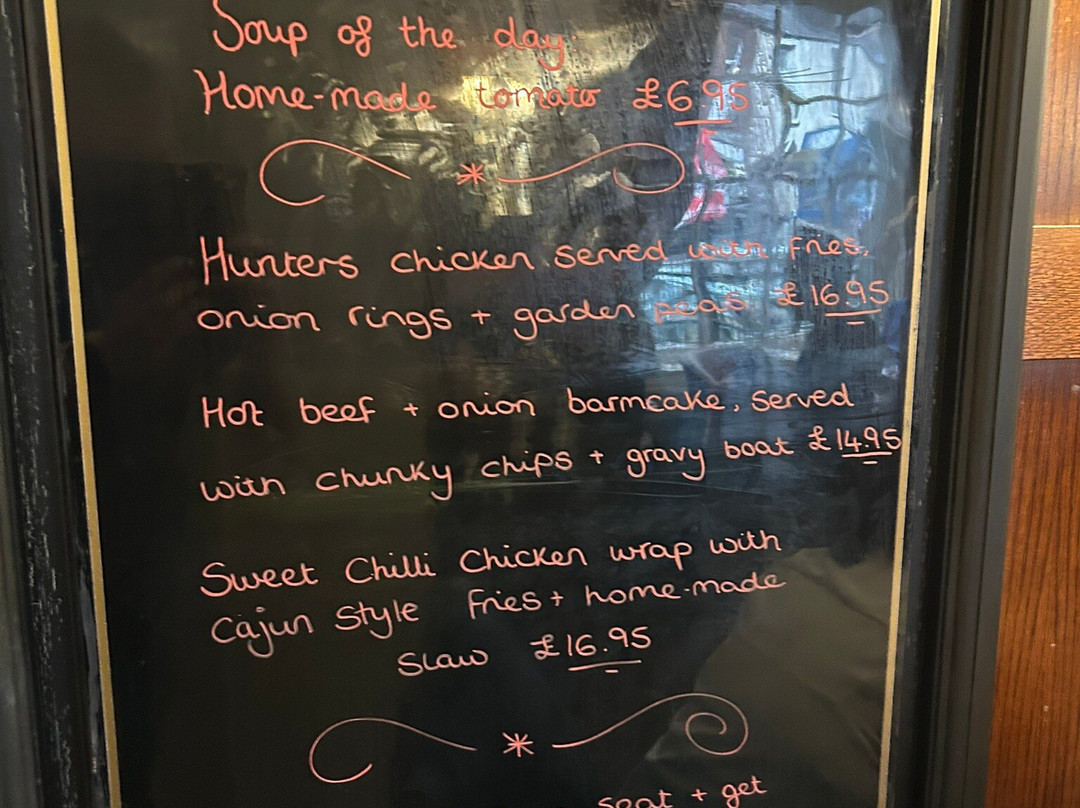 Soup of the day:
Home-made tomato £6.95
Hunters chicken served with fries,
onion rings + garden peas £16.95
Hot beef + onion barmcake, served
with chunky chips + gravy boat £14.95
Sweet Chilli Chicken wrap with
Cajun Style Fries + home-made
Slaw £16.95
seat + get